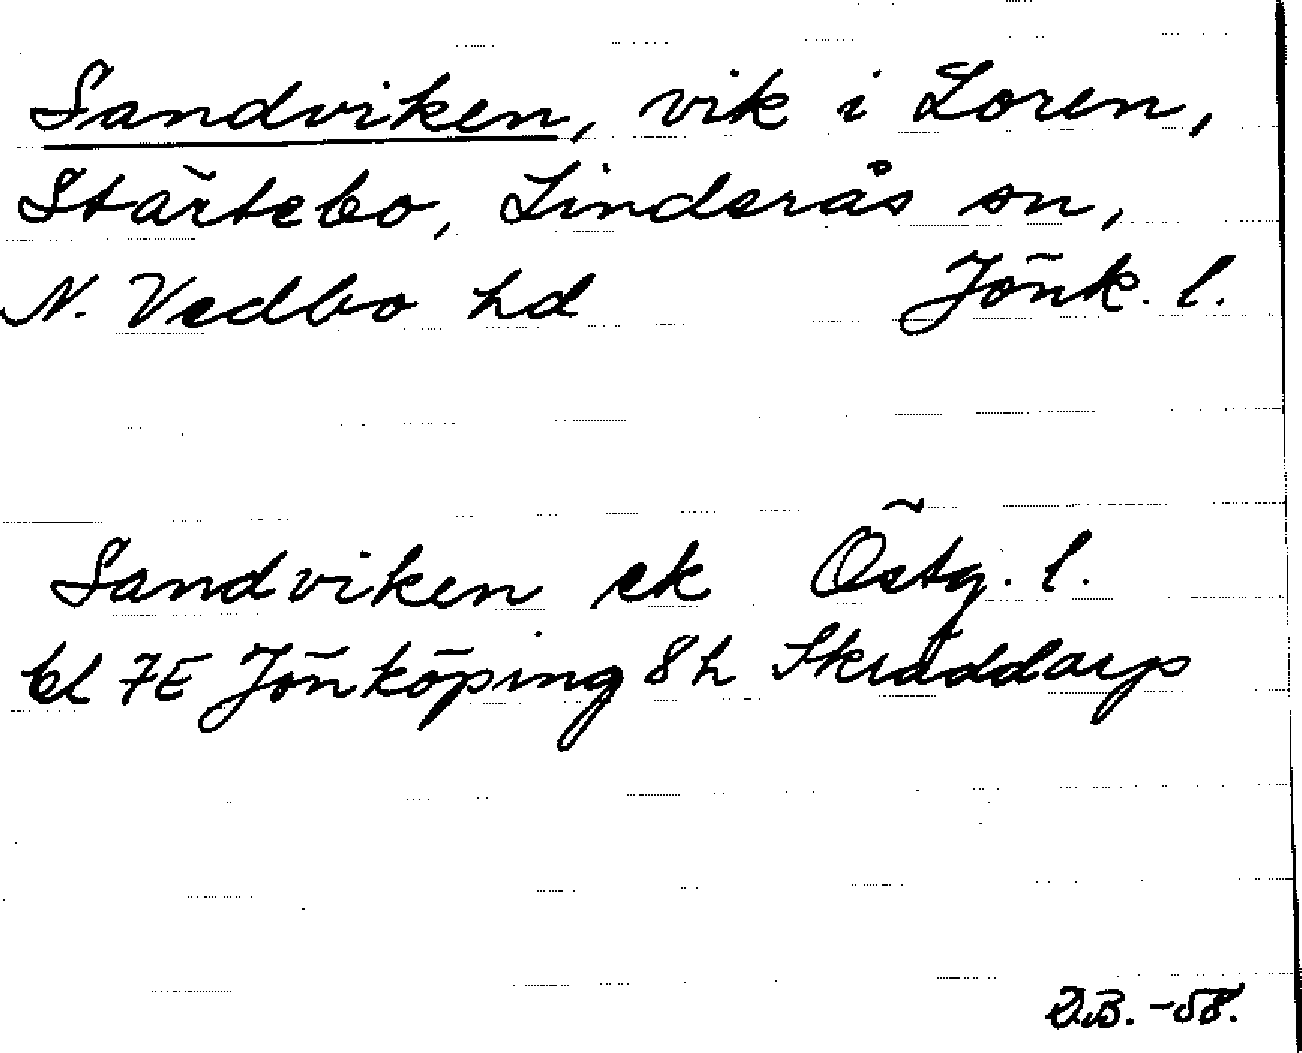 Sandviken, vik i Loren,
Stärtebo, Linderås sn,
N. Vedbo hd Jönk. l.
Sandviken ek Östg. l.
bl 7E Jönköping 8h Skruddarp
D.B. -58.